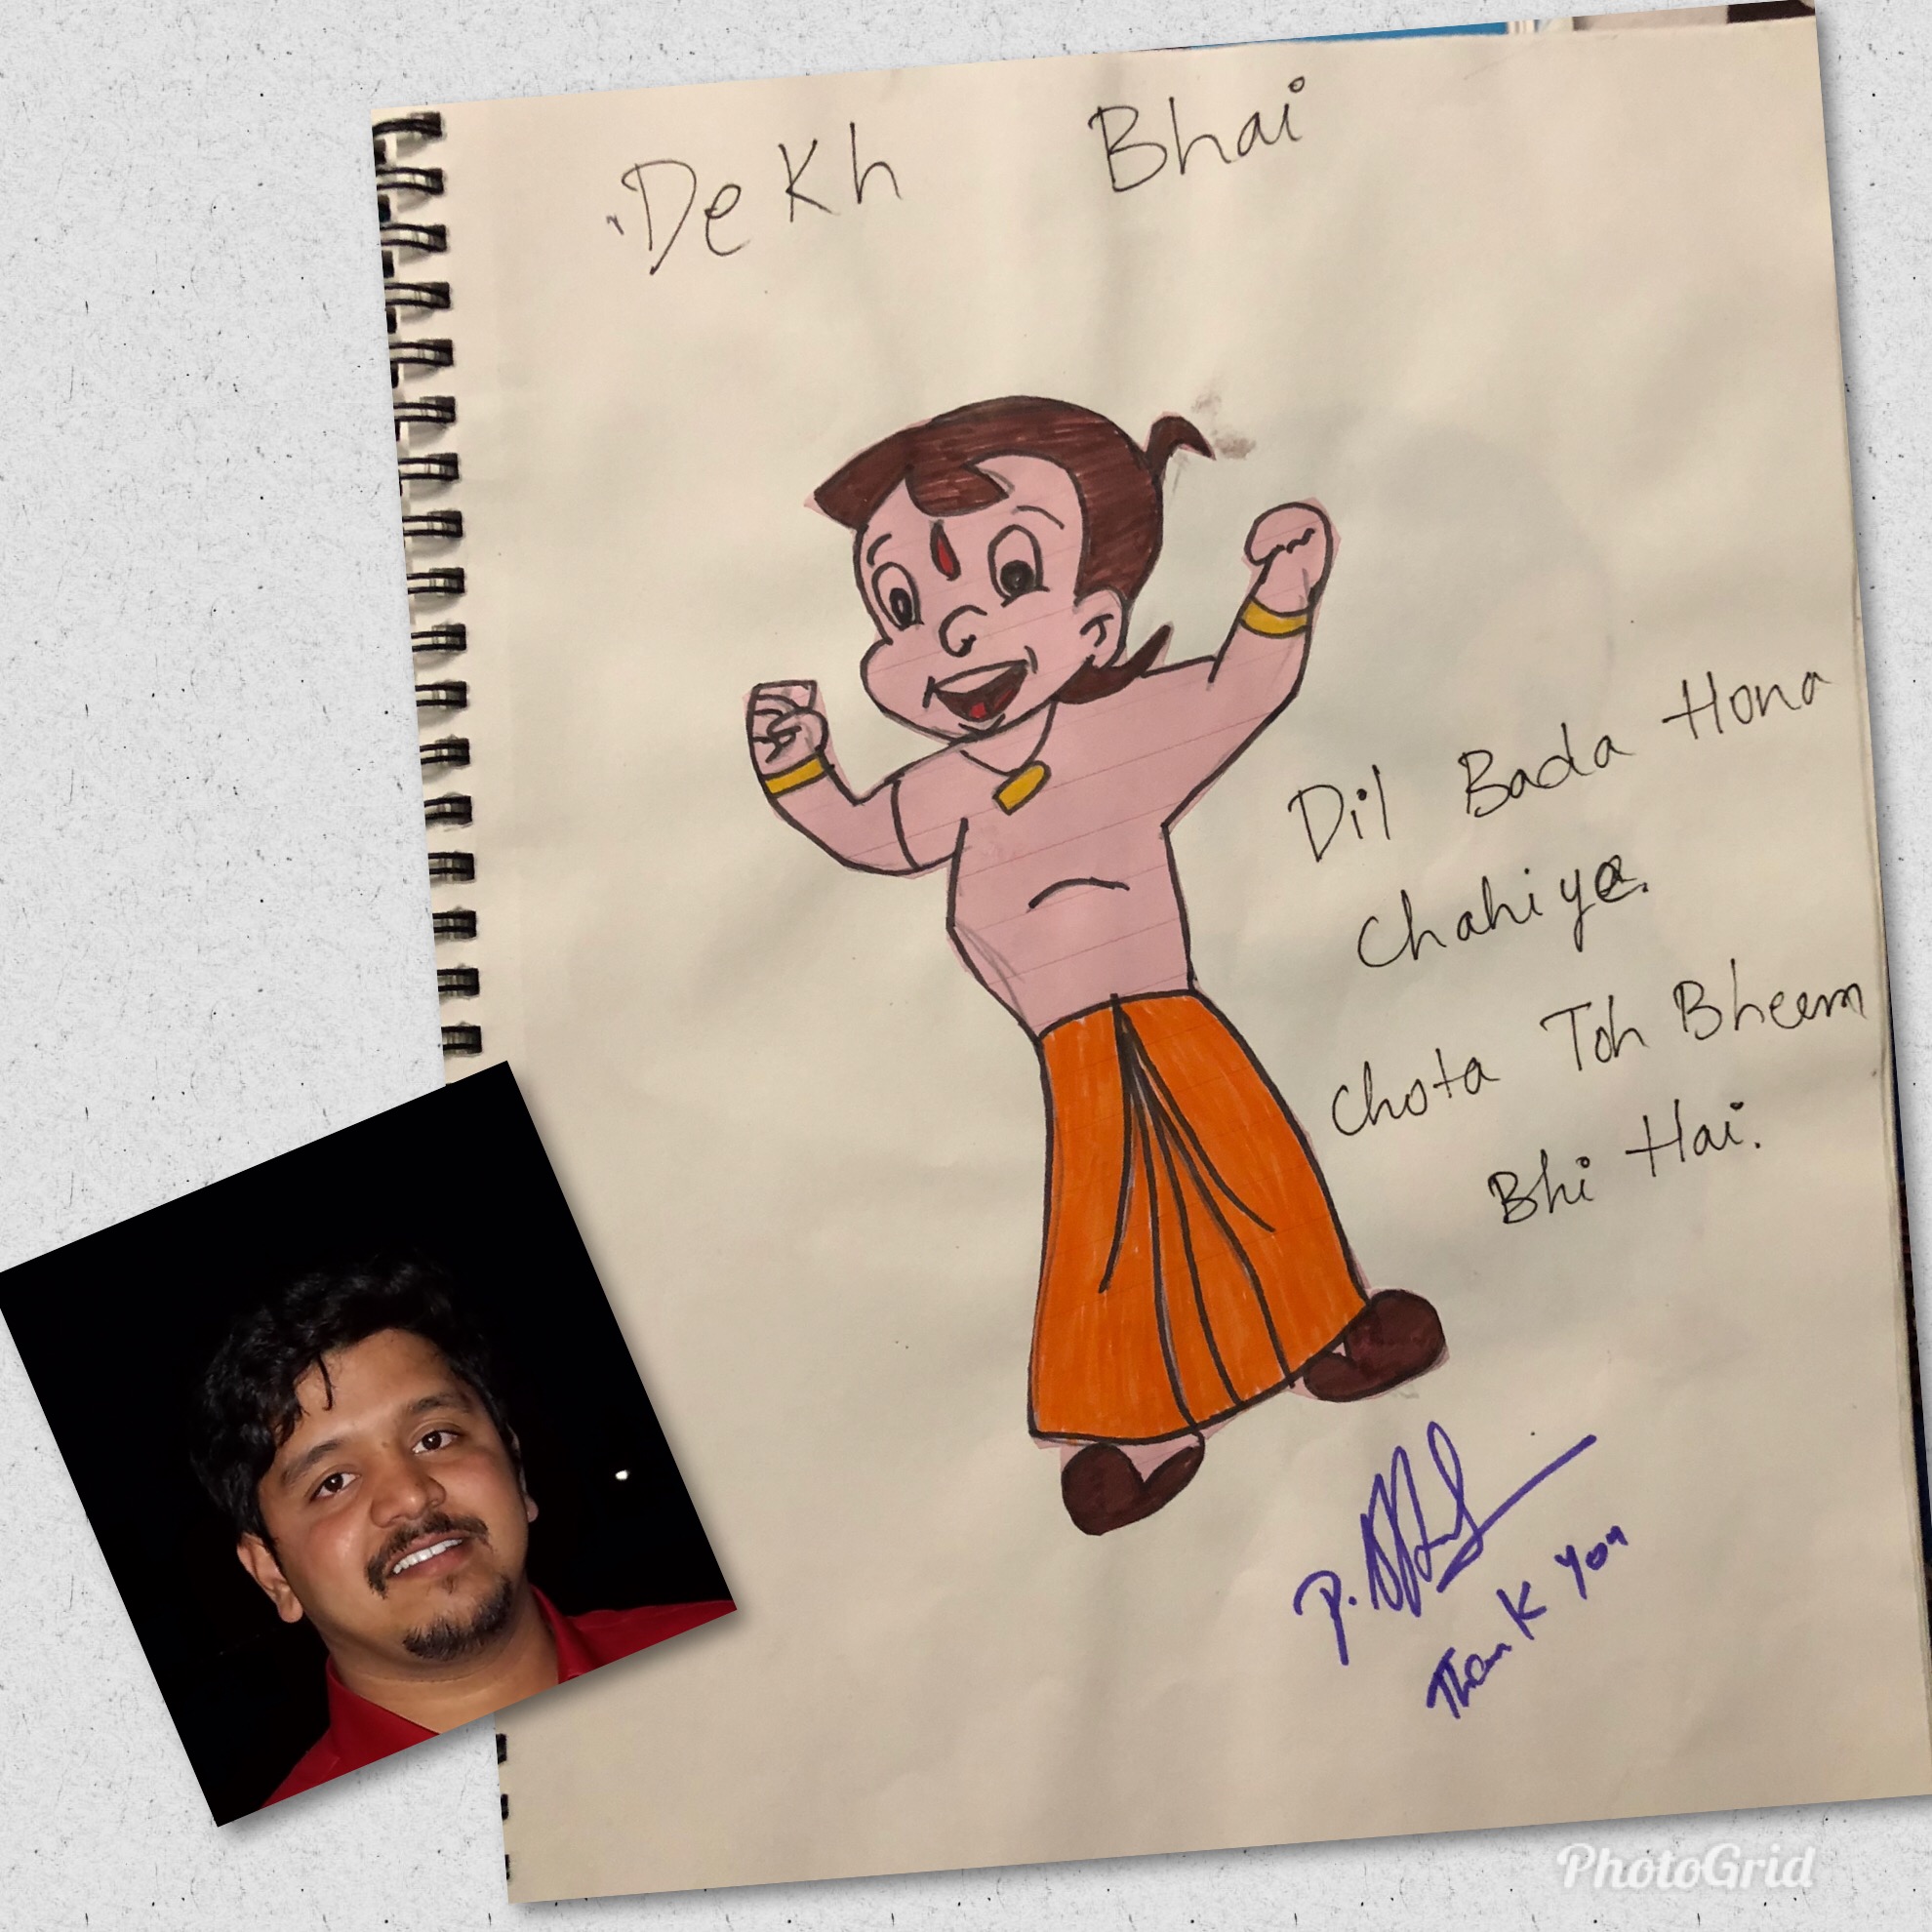 Dekh Bhai
Dil Bada Hona
Chahiye.
Chota Toh Bheem
Bhi Hai.
P.
Thank You
PhotoGrid